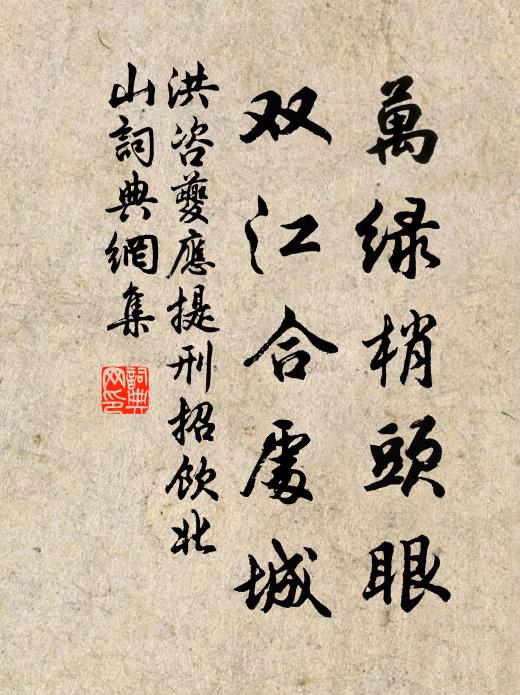 萬緑梢頭眼
双江合處城
洪咨夔應提刑招飲北
山詞典網集
詞典
网印